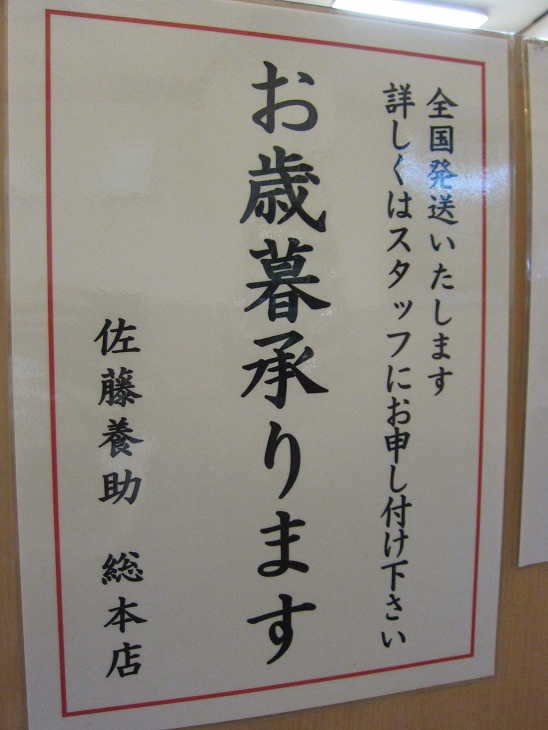 全国発送いたします
詳しくはスタッフにお申し付け下さい
お歳暮承ります
佐藤養助 総本店